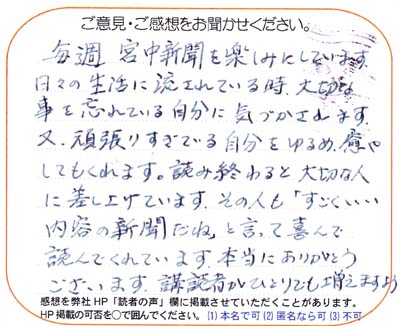 ご意見・ご感想をお聞かせください。
毎週 宮中新聞を楽しみにしています。
日々の生活に流されている時、大切な
事を忘れている自分に気づかされます。
又、頑張りすぎている自分をゆるめ、癒や
してもくれます。読み終わると大切な人
に差し上げています。その人も「すごくいい
内容の新聞だね」と言って喜んで
読んでくれています。本当にありがとう
ございます。購読者がひとりでも増えますよう
感想を弊社HP「読者の声」欄に掲載させていただくことがあります。
HP掲載の可否を〇で囲んでください。 (1)本名で可 (2)匿名なら可 (3)不可